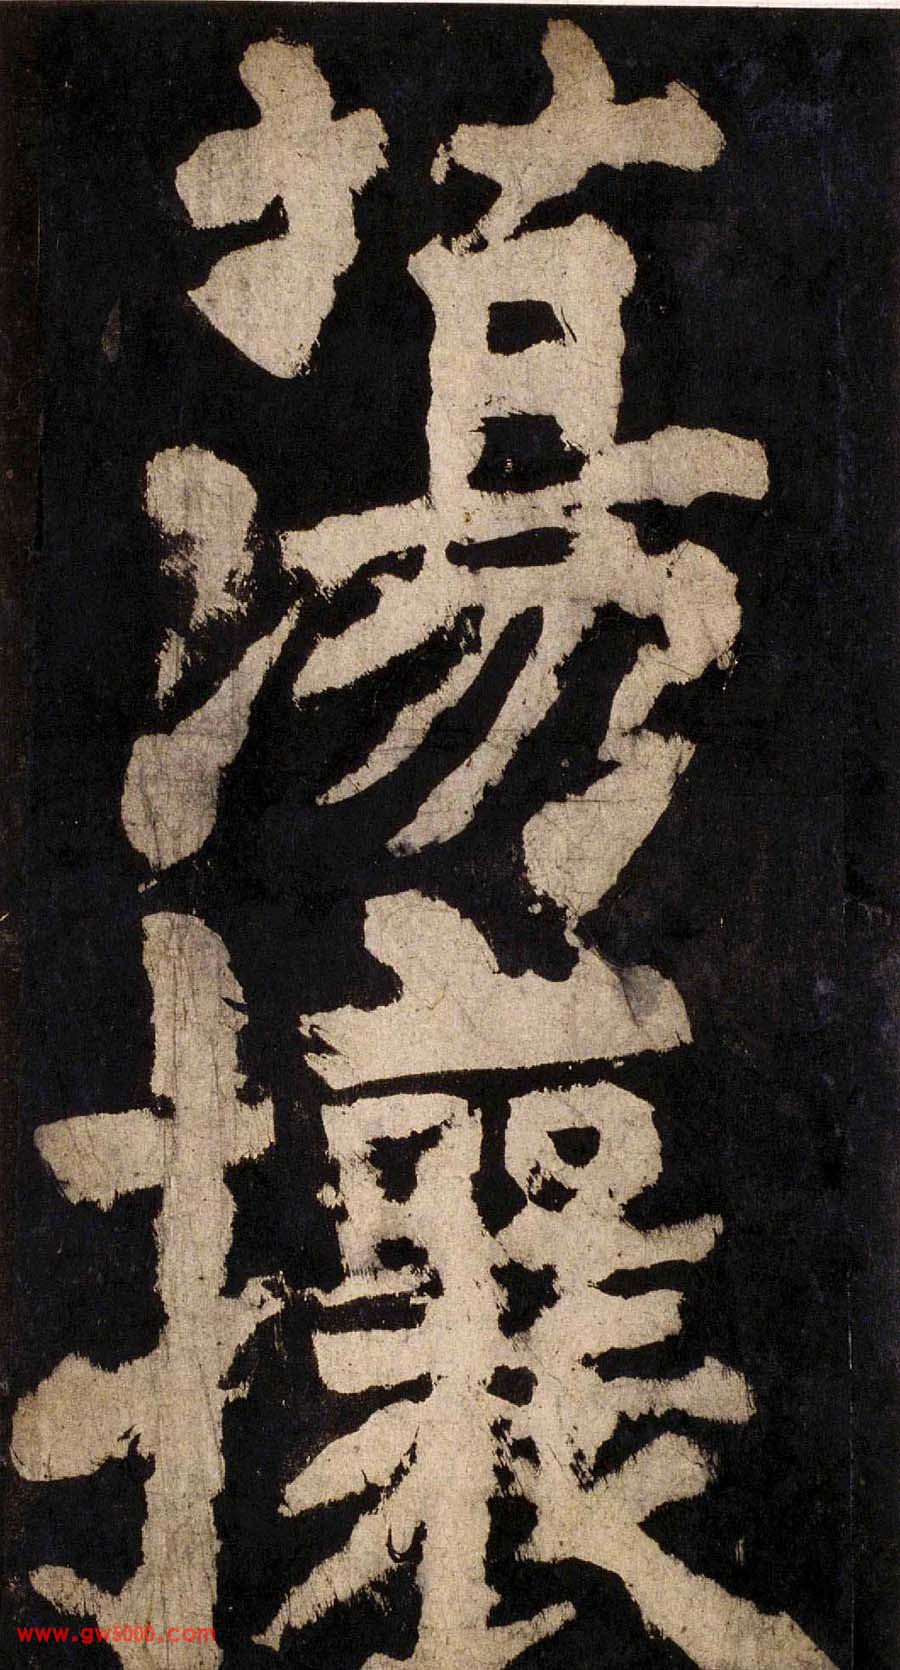 蕩
攘
www.gw5000.com